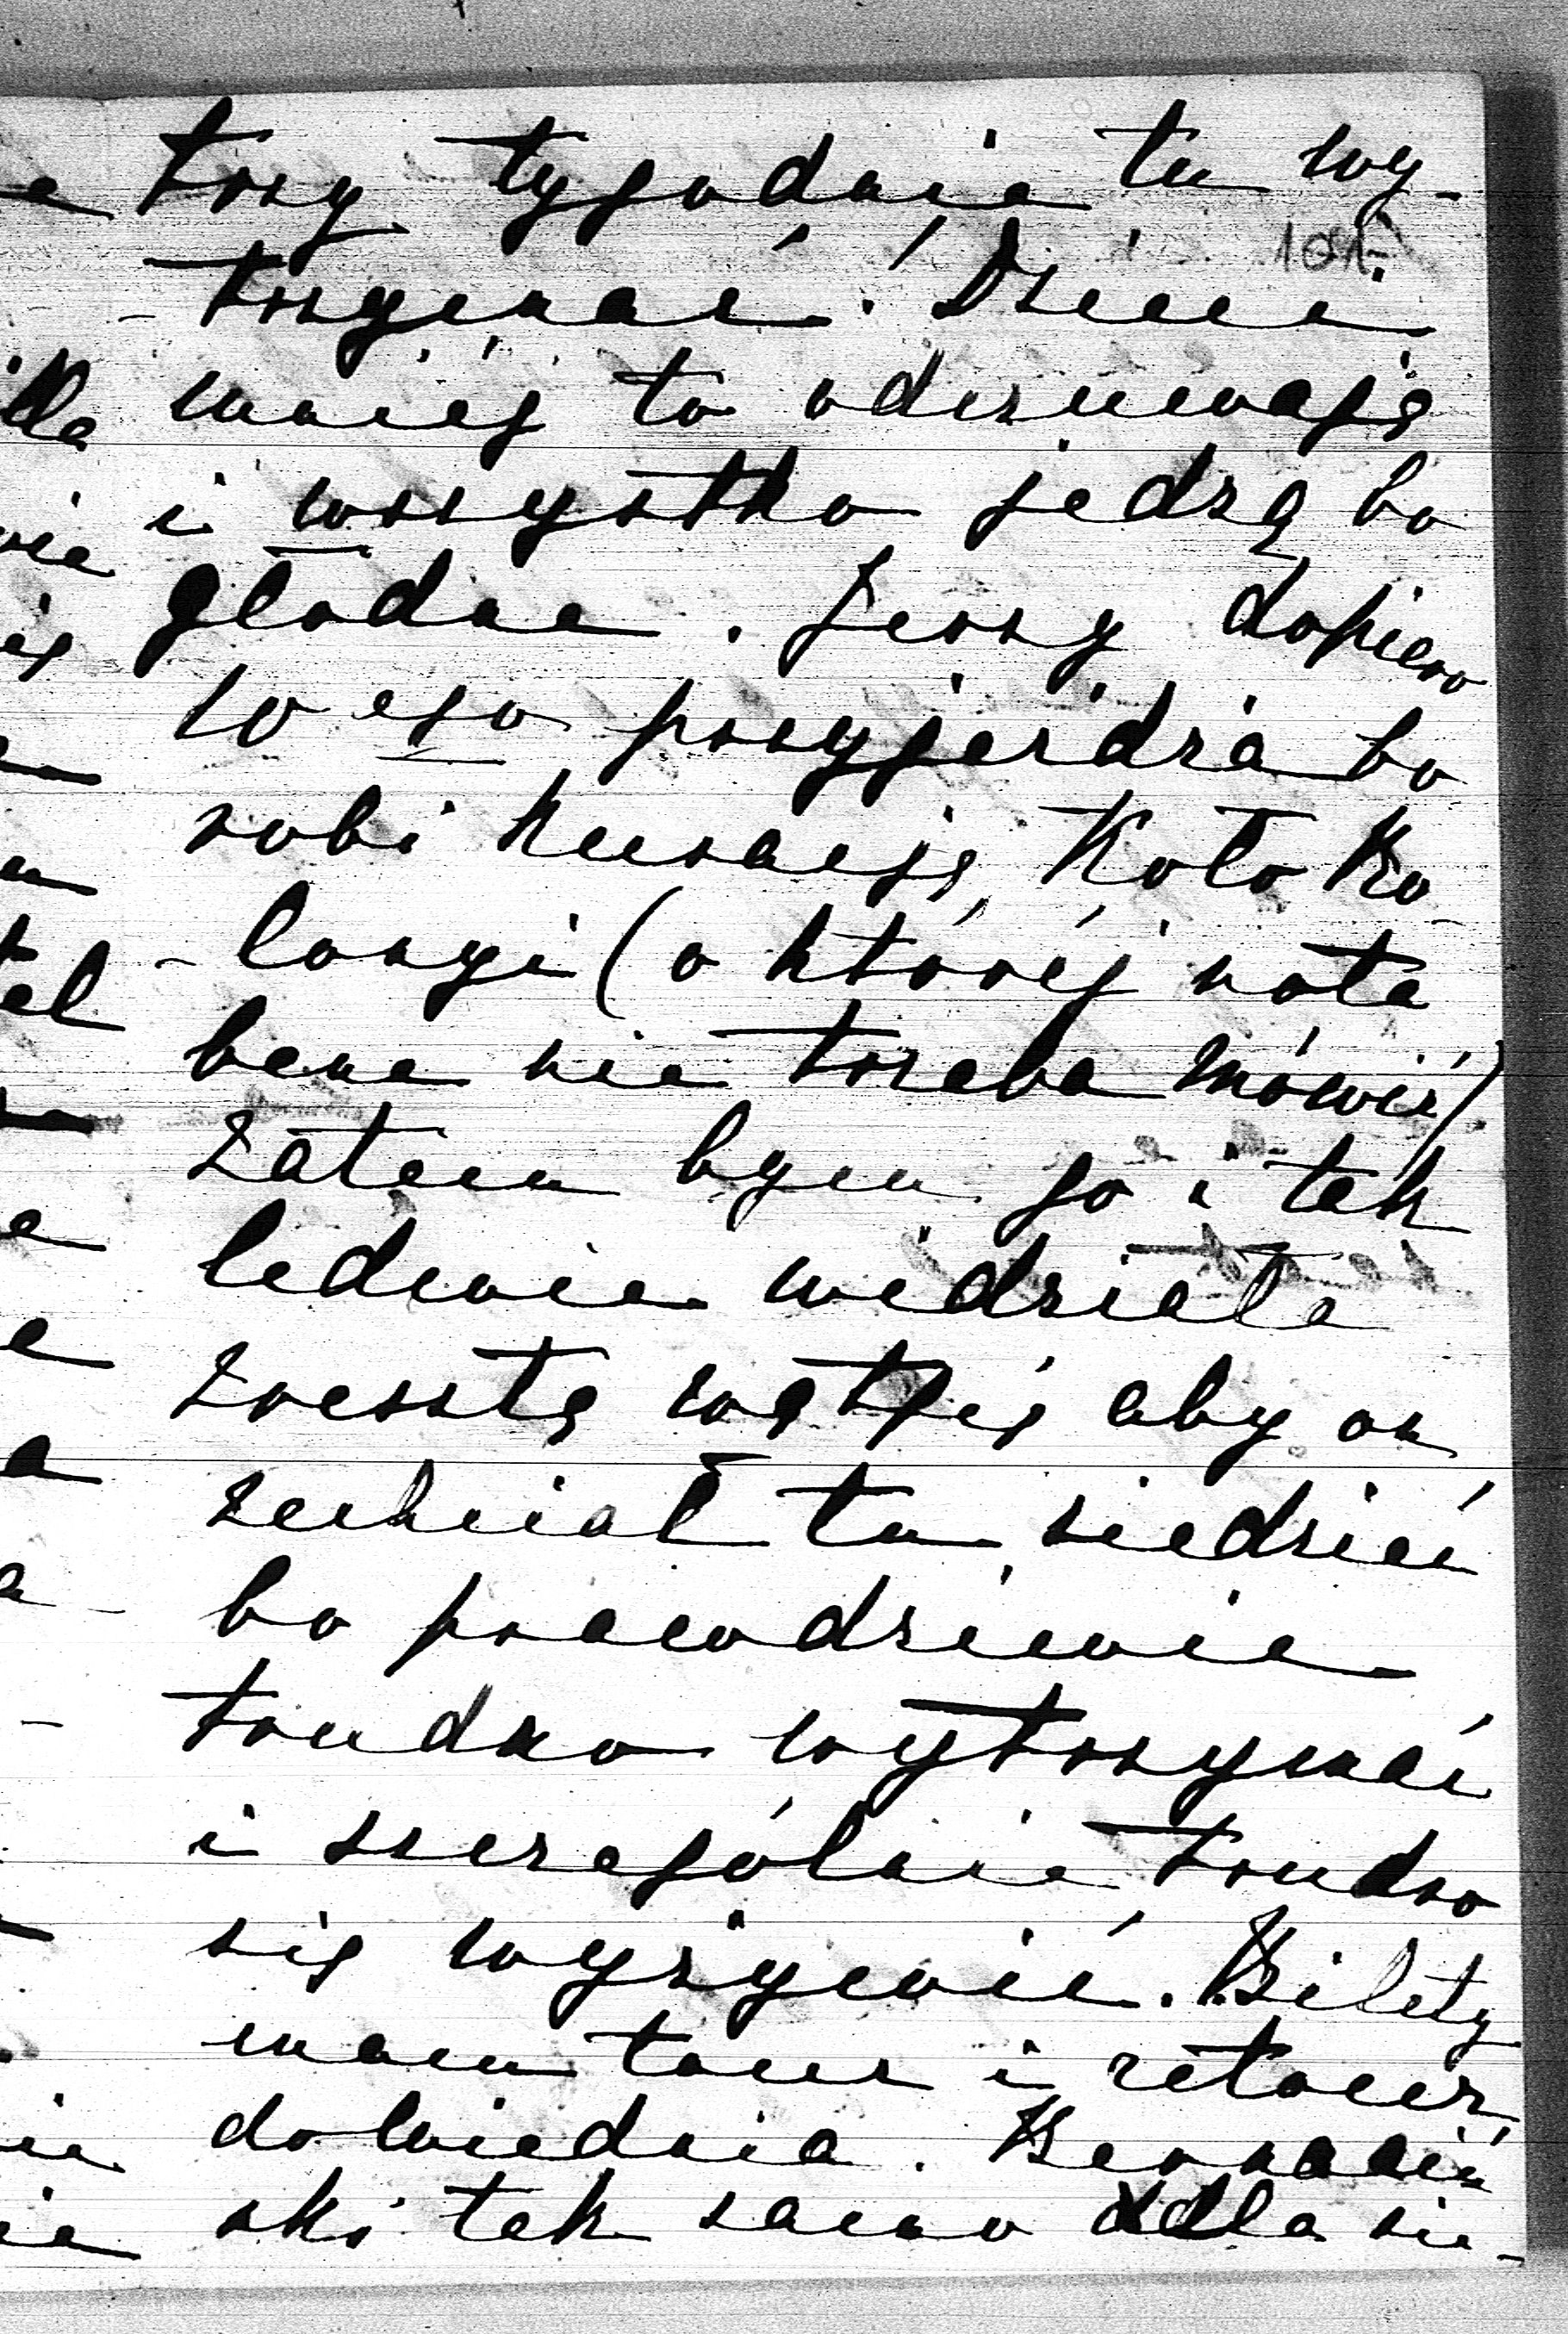 trzy tygodnie tu wy-
101
-trzymać. Dzieci
mniej to odczuwają
i wszystko jedzą bo
głodne. Jerzy dopiero
10ego przyjeżdża bo
robi kuracją koło Ko-
-lonyi (o której nota
bene nie trzeba mówić)
zatem bym go i tak
ledwie widziała
zresztą wątpię aby on
zechciał tu siedzieć
bo prawdziwie
trudno wytrzymać
i szczególnie trudno
się wyżywić. Bilety
mam tour i retour
do Wiednia. Bernadzi
ski tak samo dla sie-